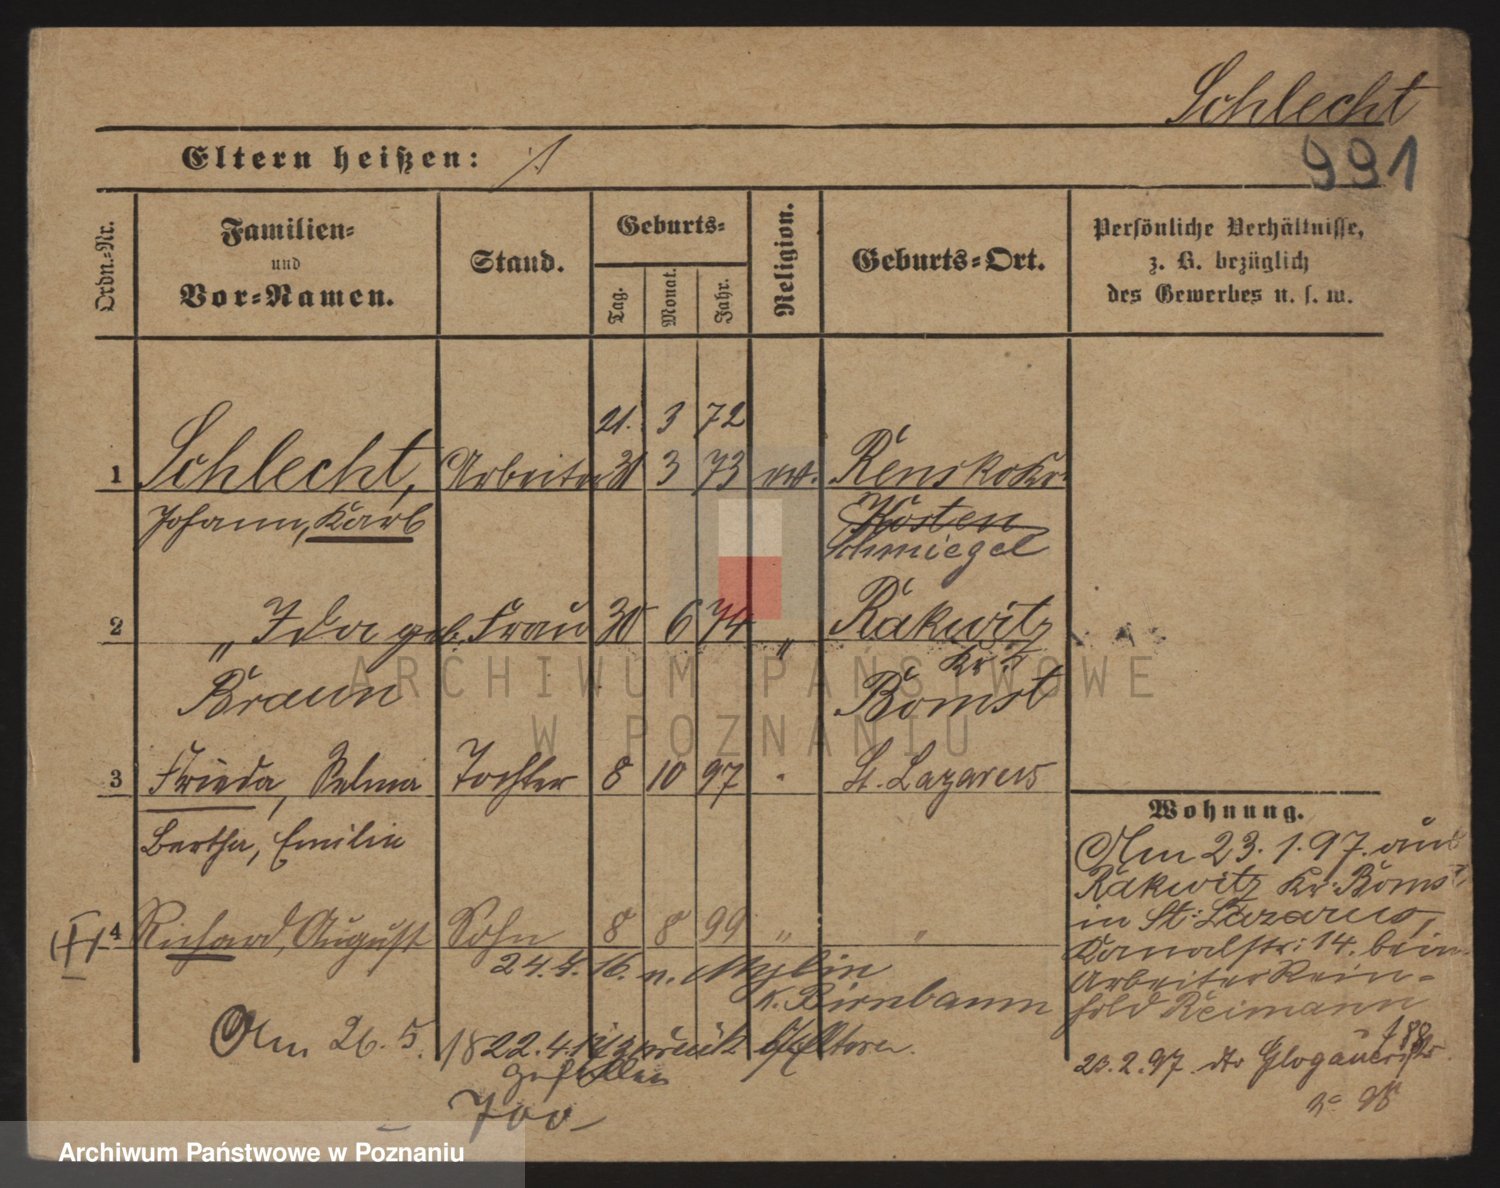 Schlecht
991
Eltern heißen:
Ordn.-Nr.
Familien-
und
Vor-Namen.
Stand.
Geburts-
Tag.
Monat.
Jahr.
Religion.
Geburts-Ort.
Persönliche Verhältnisse,
z. B. bezüglich
des Gewerbes u. s. w.
21. 3 72
1 Schlecht, Arbeiter 31 3 73 ev. Rensko Kr.
Johann, Karl Kosten
Schmiegel
2 " Ida geb. Frau 30 6 74 " Rakwitz
Kr.
Braun Bomst
3 Frieda, Selma Tochter 8 10 97 " St. Lazarus
Bertha, Emilie
4 Richard, August Sohn 8 8 99 " "
24.4.16. n.
K. Birnbaum
22.4. zurück Eltern.
Am 26. 5. 18
gefallen
700
Wohnung.
Am 23.1.97. aus
Rakwitz Kr. Bomst
in St. Lazarus,
Kanalstr. 14. beim
Arbeiter Rein-
hold Reimann
23.2.97. dto Glogauerstr. 88
ARCHIWUM PAŃSTWOWE
W POZNANIU
Archiwum Państwowe w Poznaniu